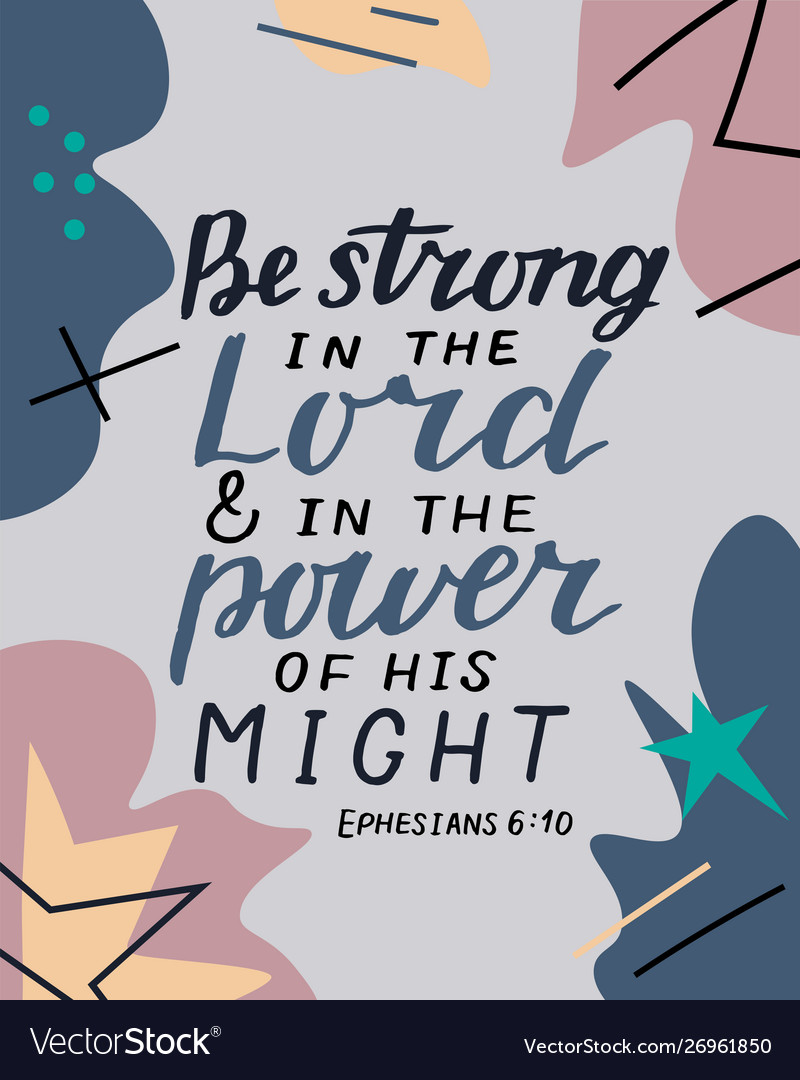 Be strong
IN THE
Lord
& IN THE
power
OF HIS
MIGHT
EPHESIANS 6:10
VectorStock®
VectorStock.com/26961850